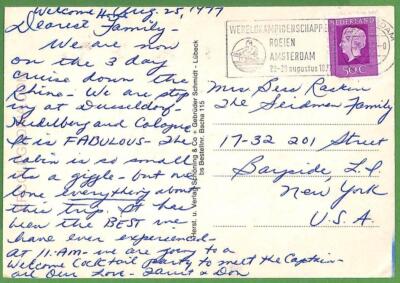 Welcome Home Aug. 25, 1977
Dearest Family-
We are now
on the 3 day
cruise down the
Rhine- We are stop
ing at Dusseldorf-
Heidelberg and Cologne
It is FABULOUS- The
cabin is so small
its a giggle- but we
love everything about
this trip. It has
been the BEST we
have ever experienced-
at 11:AM- we are going to a
Welcome Cocktail party to meet the Captain-
all Our Love- Janet & Don
Herst. u. Verlag Schöning & Co + Gebrüder Schmidt - Lübeck
bs Bestellnr. Bacha 115
WERELDKAMPIOENSCHAPPEN
ROEIEN
AMSTERDAM
augustus 1977
NEDERLAND
50c
DAM
Mrs Dess Raskin
The Seidman Family
17-32 201 Street
Bayside, L.I.
New York
U.S.A.